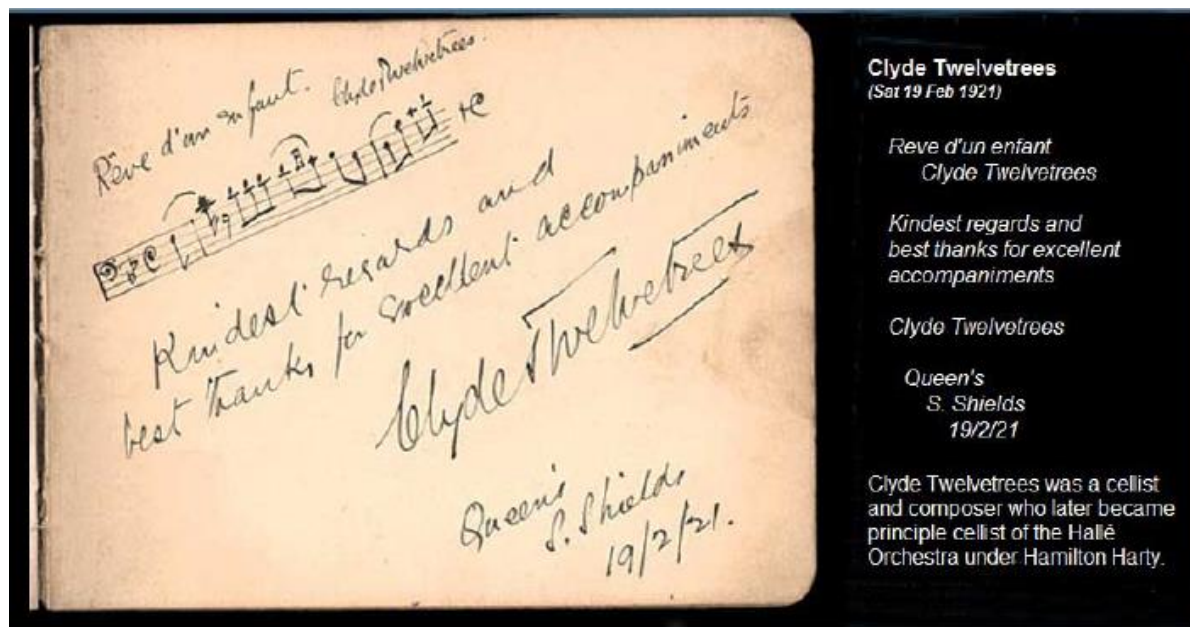 Rêve d'un enfant.
Clyde Twelvetrees.
etc
Kindest regards and
best thanks for excellent accompaniments
Clyde Twelvetrees
Queen's
S. Shields
19/2/21.
Clyde Twelvetrees
(Sat 19 Feb 1921)
Reve d'un enfant
Clyde Twelvetrees
Kindest regards and
best thanks for excellent
accompaniments
Clyde Twelvetrees
Queen's
S. Shields
19/2/21
Clyde Twelvetrees was a cellist
and composer who later became
principle cellist of the Hallé
Orchestra under Hamilton Harty.